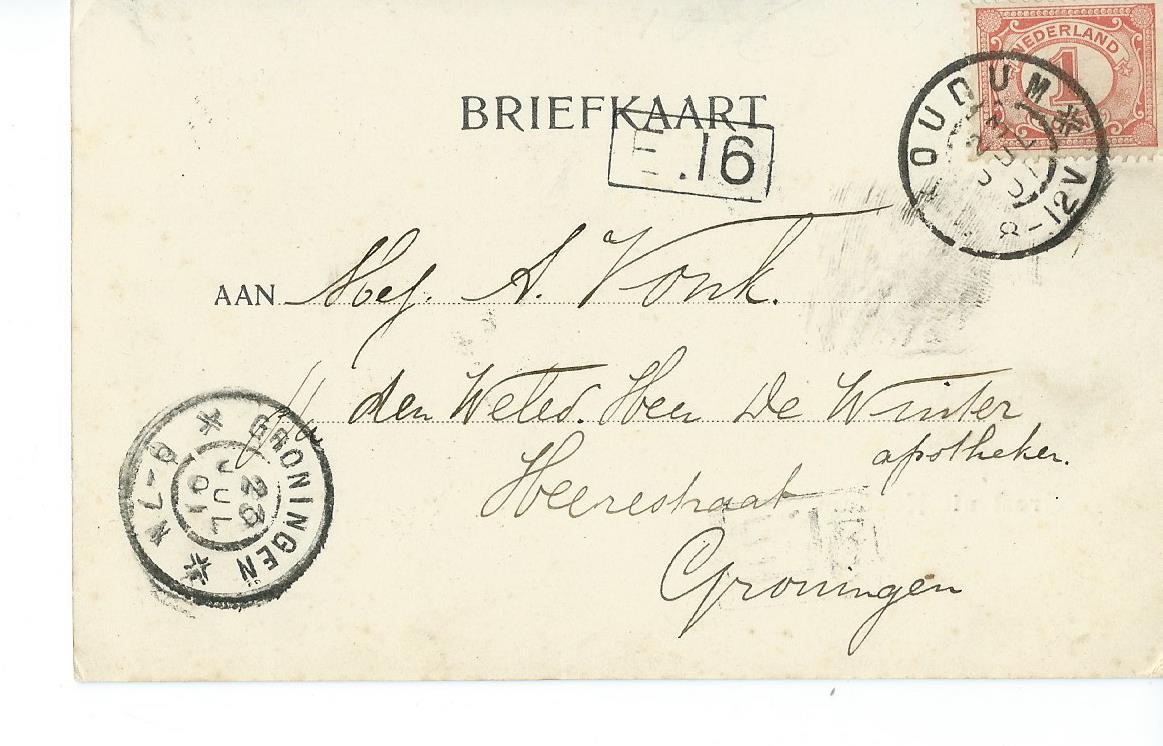 NEDERLAND
1
BRIEFKAART
.16
OUDUM
8-12V
AAN Mej. A. Vonk.
p/a den Weled. Heer De Winter
apotheker.
Heerestraat
Groningen
GRONINGEN
23
JUL
01
6-7N